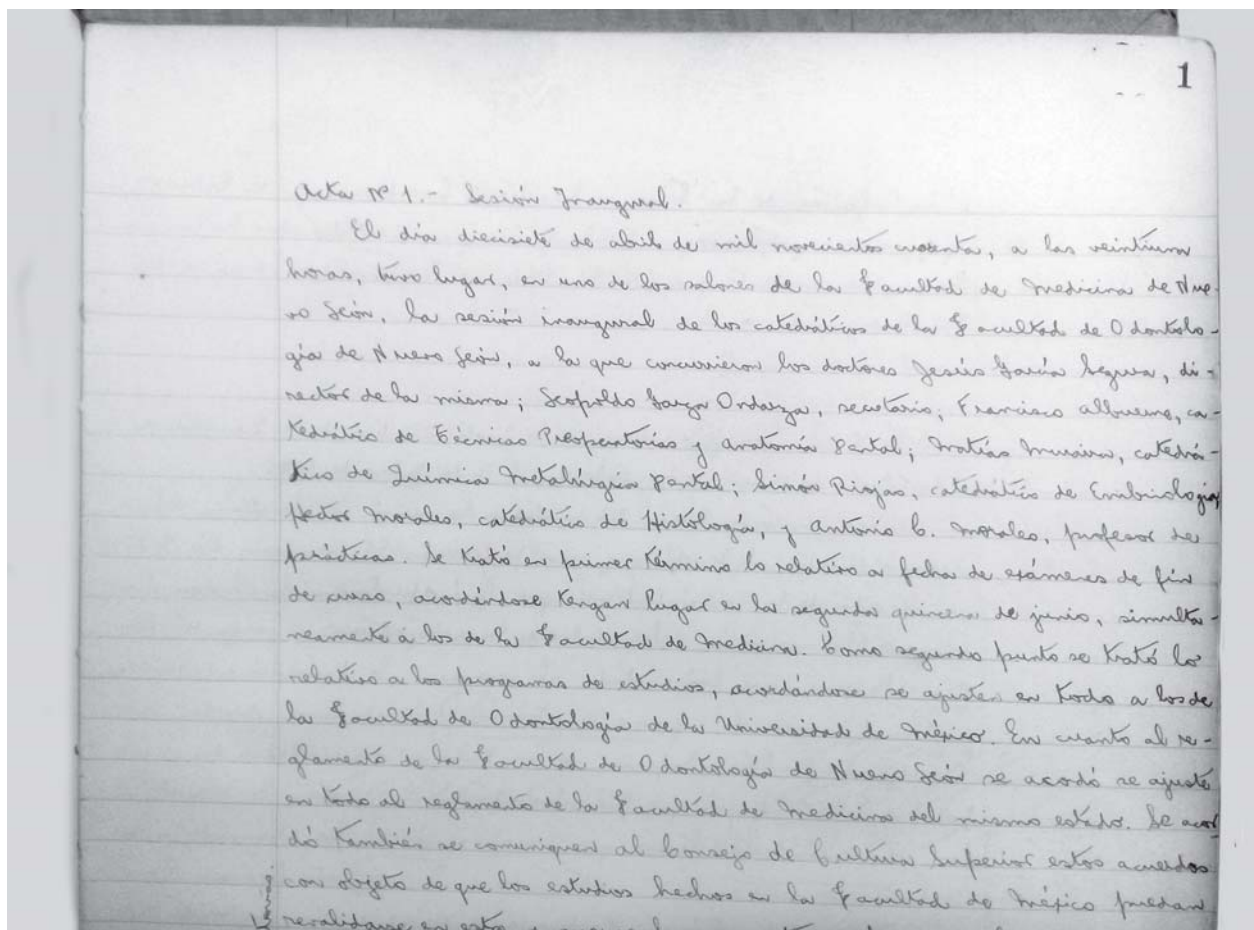 1
Acta Nº 1.- Sesión Inaugural.
El día diecisiete de abril de mil novecientos cuarenta, a las veintiuna
horas, tuvo lugar, en uno de los salones de la Facultad de Medicina de Nue-
vo León, la sesión inaugural de los catedráticos de la Facultad de Odontolo-
gía de Nuevo León, a la que concurrieron los doctores Jesús García Segura, di-
rector de la misma; Leopoldo Garza Ondarza, secretario; Francisco Albuerne, ca-
tedrático de Técnicas Preoperatorias y Anatomía Dental; Matías Muraira, catedrá-
tico de Química Metalúrgica Dental; Simón Riojas, catedrático de Embriología,
Hector Morales, catedrático de Histología, y Antonio C. Morales, profesor de
prácticas. Se trató en primer término lo relativo a fecha de exámenes de fin
de curso, acordándose tengan lugar en la segunda quincena de junio, simulta-
neamente á los de la Facultad de Medicina. Como segundo punto se trató lo
relativo a los programas de estudios, acordándose se ajusten en todo a los de
la Facultad de Odontología de la Universidad de México. En cuanto al re-
glamento de la Facultad de Odontología de Nuevo León se acordó se ajuste
en todo al reglamento de la Facultad de Medicina del mismo estado. Se acor
dó también se comuniquen al Consejo de Cultura Superior estos acuerdos
con objeto de que los estudios hechos en la Facultad de México puedan
revalidarse en esta